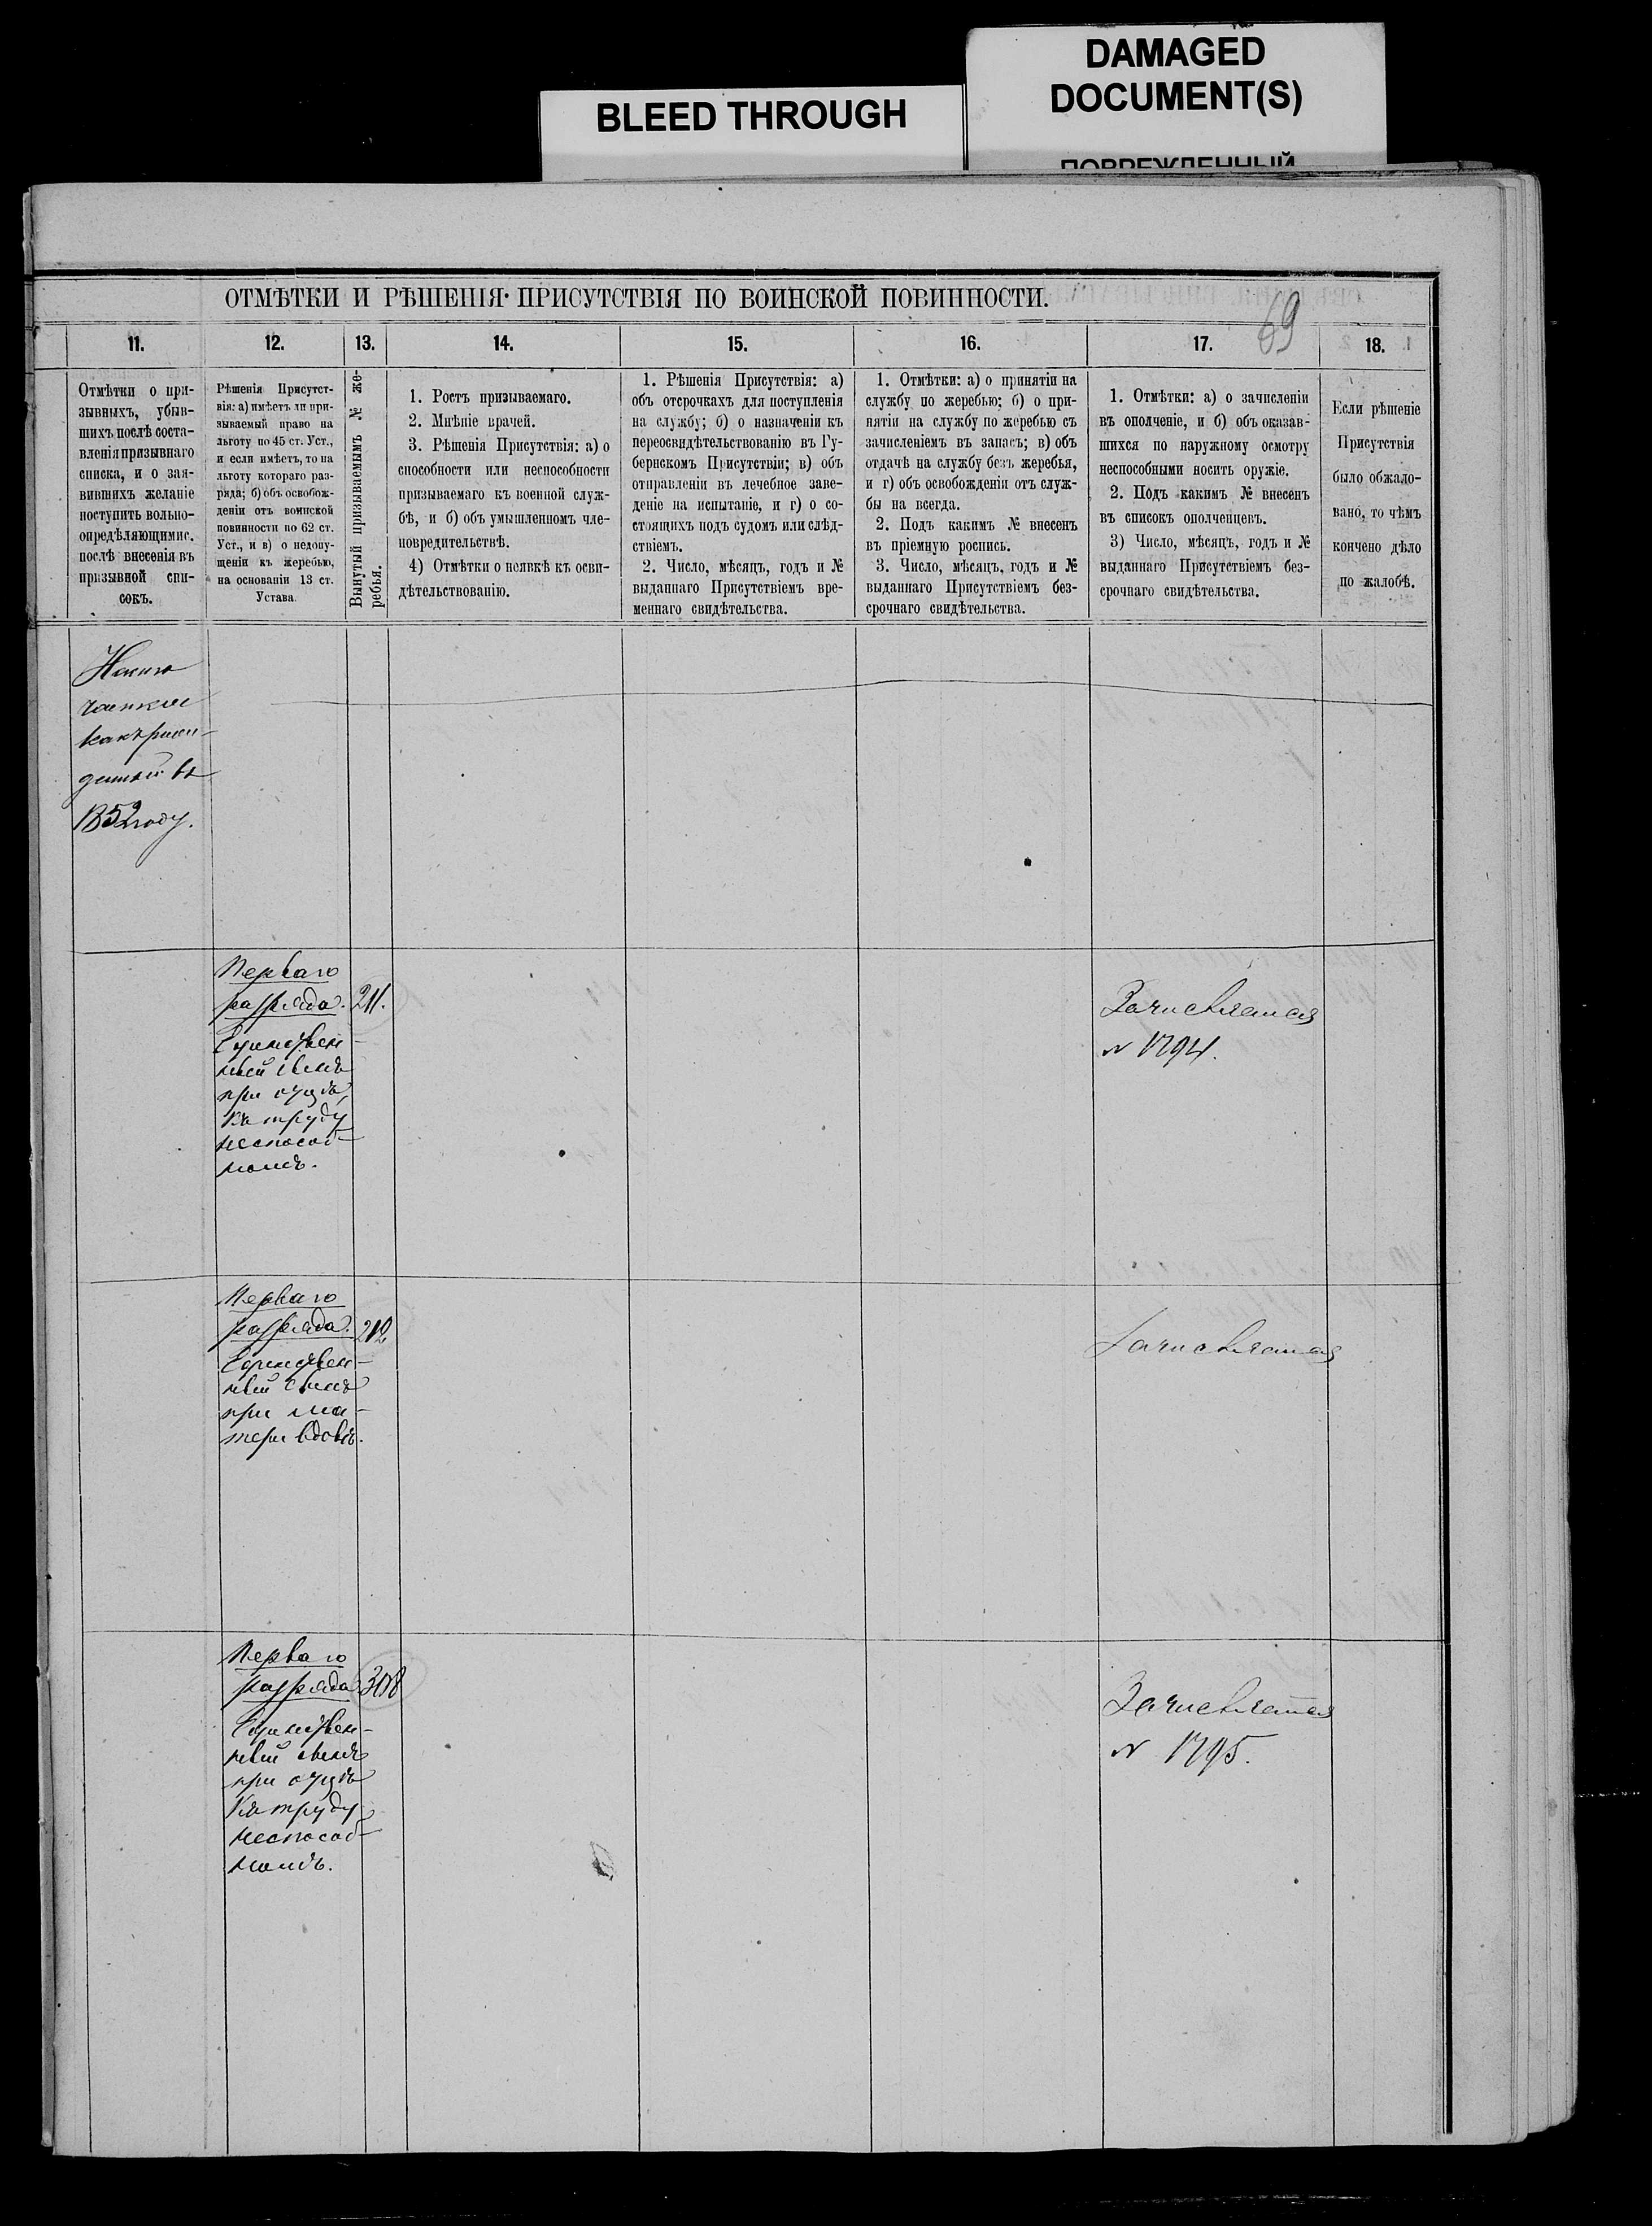 DAMAGED
DOCUMENT(S)
BLEED THROUGH
ПОВРЕЖДЕННЫЙ
ОТМѢТКИ И РѢШЕНІЯ ПРИСУТСТВІЯ ПО ВОИНСКОЙ ПОВИННОСТИ.
69
11.
12.
13.
14.
15.
16.
17.
18.
Отмѣтки о при-
зывныхъ, убыв-
шихъ послѣ соста-
вленія призывнаго
списка, и о зая-
вившихъ желаніе
поступить вольно-
опредѣляющимис.
послѣ внесенія въ
призывной спи-
сокъ.
Рѣшенія Присутст-
вія: а) имѣетъ ли при-
зываемый право на
льготу по 45 ст. Уст.,
и если имѣетъ, то на
льготу котораго раз-
ряда; б) объ освобож-
деніи отъ воинской
повинности по 62 ст.
Уст., и в) о недопу-
щеніи къ жеребью,
на основаніи 13 ст.
Устава.
Вынутый призываемымъ № же-
ребья.
1. Ростъ призываемаго.
2. Мнѣніе врачей.
3. Рѣшенія Присутствія: а) о
способности или неспособности
призываемаго къ военной служ-
бѣ, и б) объ умышленномъ чле-
новредительствѣ.
4) Отмѣтки о неявкѣ къ осви-
дѣтельствованію.
1. Рѣшенія Присутствія: а)
объ отсрочкахъ для поступленія
на службу; б) о назначеніи къ
переосвидѣтельствованію въ Гу-
бернскомъ Присутствіи; в) объ
отправленіи въ лечебное заве-
деніе на испытаніе, и г) о со-
стоящихъ подъ судомъ или слѣд-
ствіемъ.
2. Число, мѣсяцъ, годъ и №
выданнаго Присутствіемъ вре-
меннаго свидѣтельства.
1. Отмѣтки: а) о принятіи на
службу по жеребью; б) о при-
нятіи на службу по жеребью съ
зачисленіемъ въ запасъ; в) объ
отдачѣ на службу безъ жеребья,
и г) объ освобожденіи отъ служ-
бы на всегда.
2. Подъ какимъ № внесенъ
въ пріемную роспись.
3. Число, мѣсяцъ, годъ и №
выданнаго Присутствіемъ без-
срочнаго свидѣтельства.
1. Отмѣтки: а) о зачисленіи
въ ополченіе, и б) объ оказав-
шихся по наружному осмотру
неспособными носить оружіе.
2. Подъ какимъ № внесенъ
въ списокъ ополченцевъ.
3) Число, мѣсяцъ, годъ и №
выданнаго Присутствіемъ без-
срочнаго свидѣтельства.
Если рѣшеніе
Присутствія
было обжало-
вано, то чѣмъ
кончено дѣло
по жалобѣ.
какъ рож-
денный въ
1852 году.
Перваго
разряда. 211.
Единствен-
ный сынъ
при отцѣ,
къ труду
неспособ-
номъ.
Зачисляется
№ 1794.
Перваго
разряда. 212
Единствен-
ный сынъ
при ма-
тери вдовѣ.
Зачисляется
Перваго
разряда
Единствен-
ный сынъ
при отцѣ
къ труду
неспособ-
номъ.
Зачисляется
№ 1795.